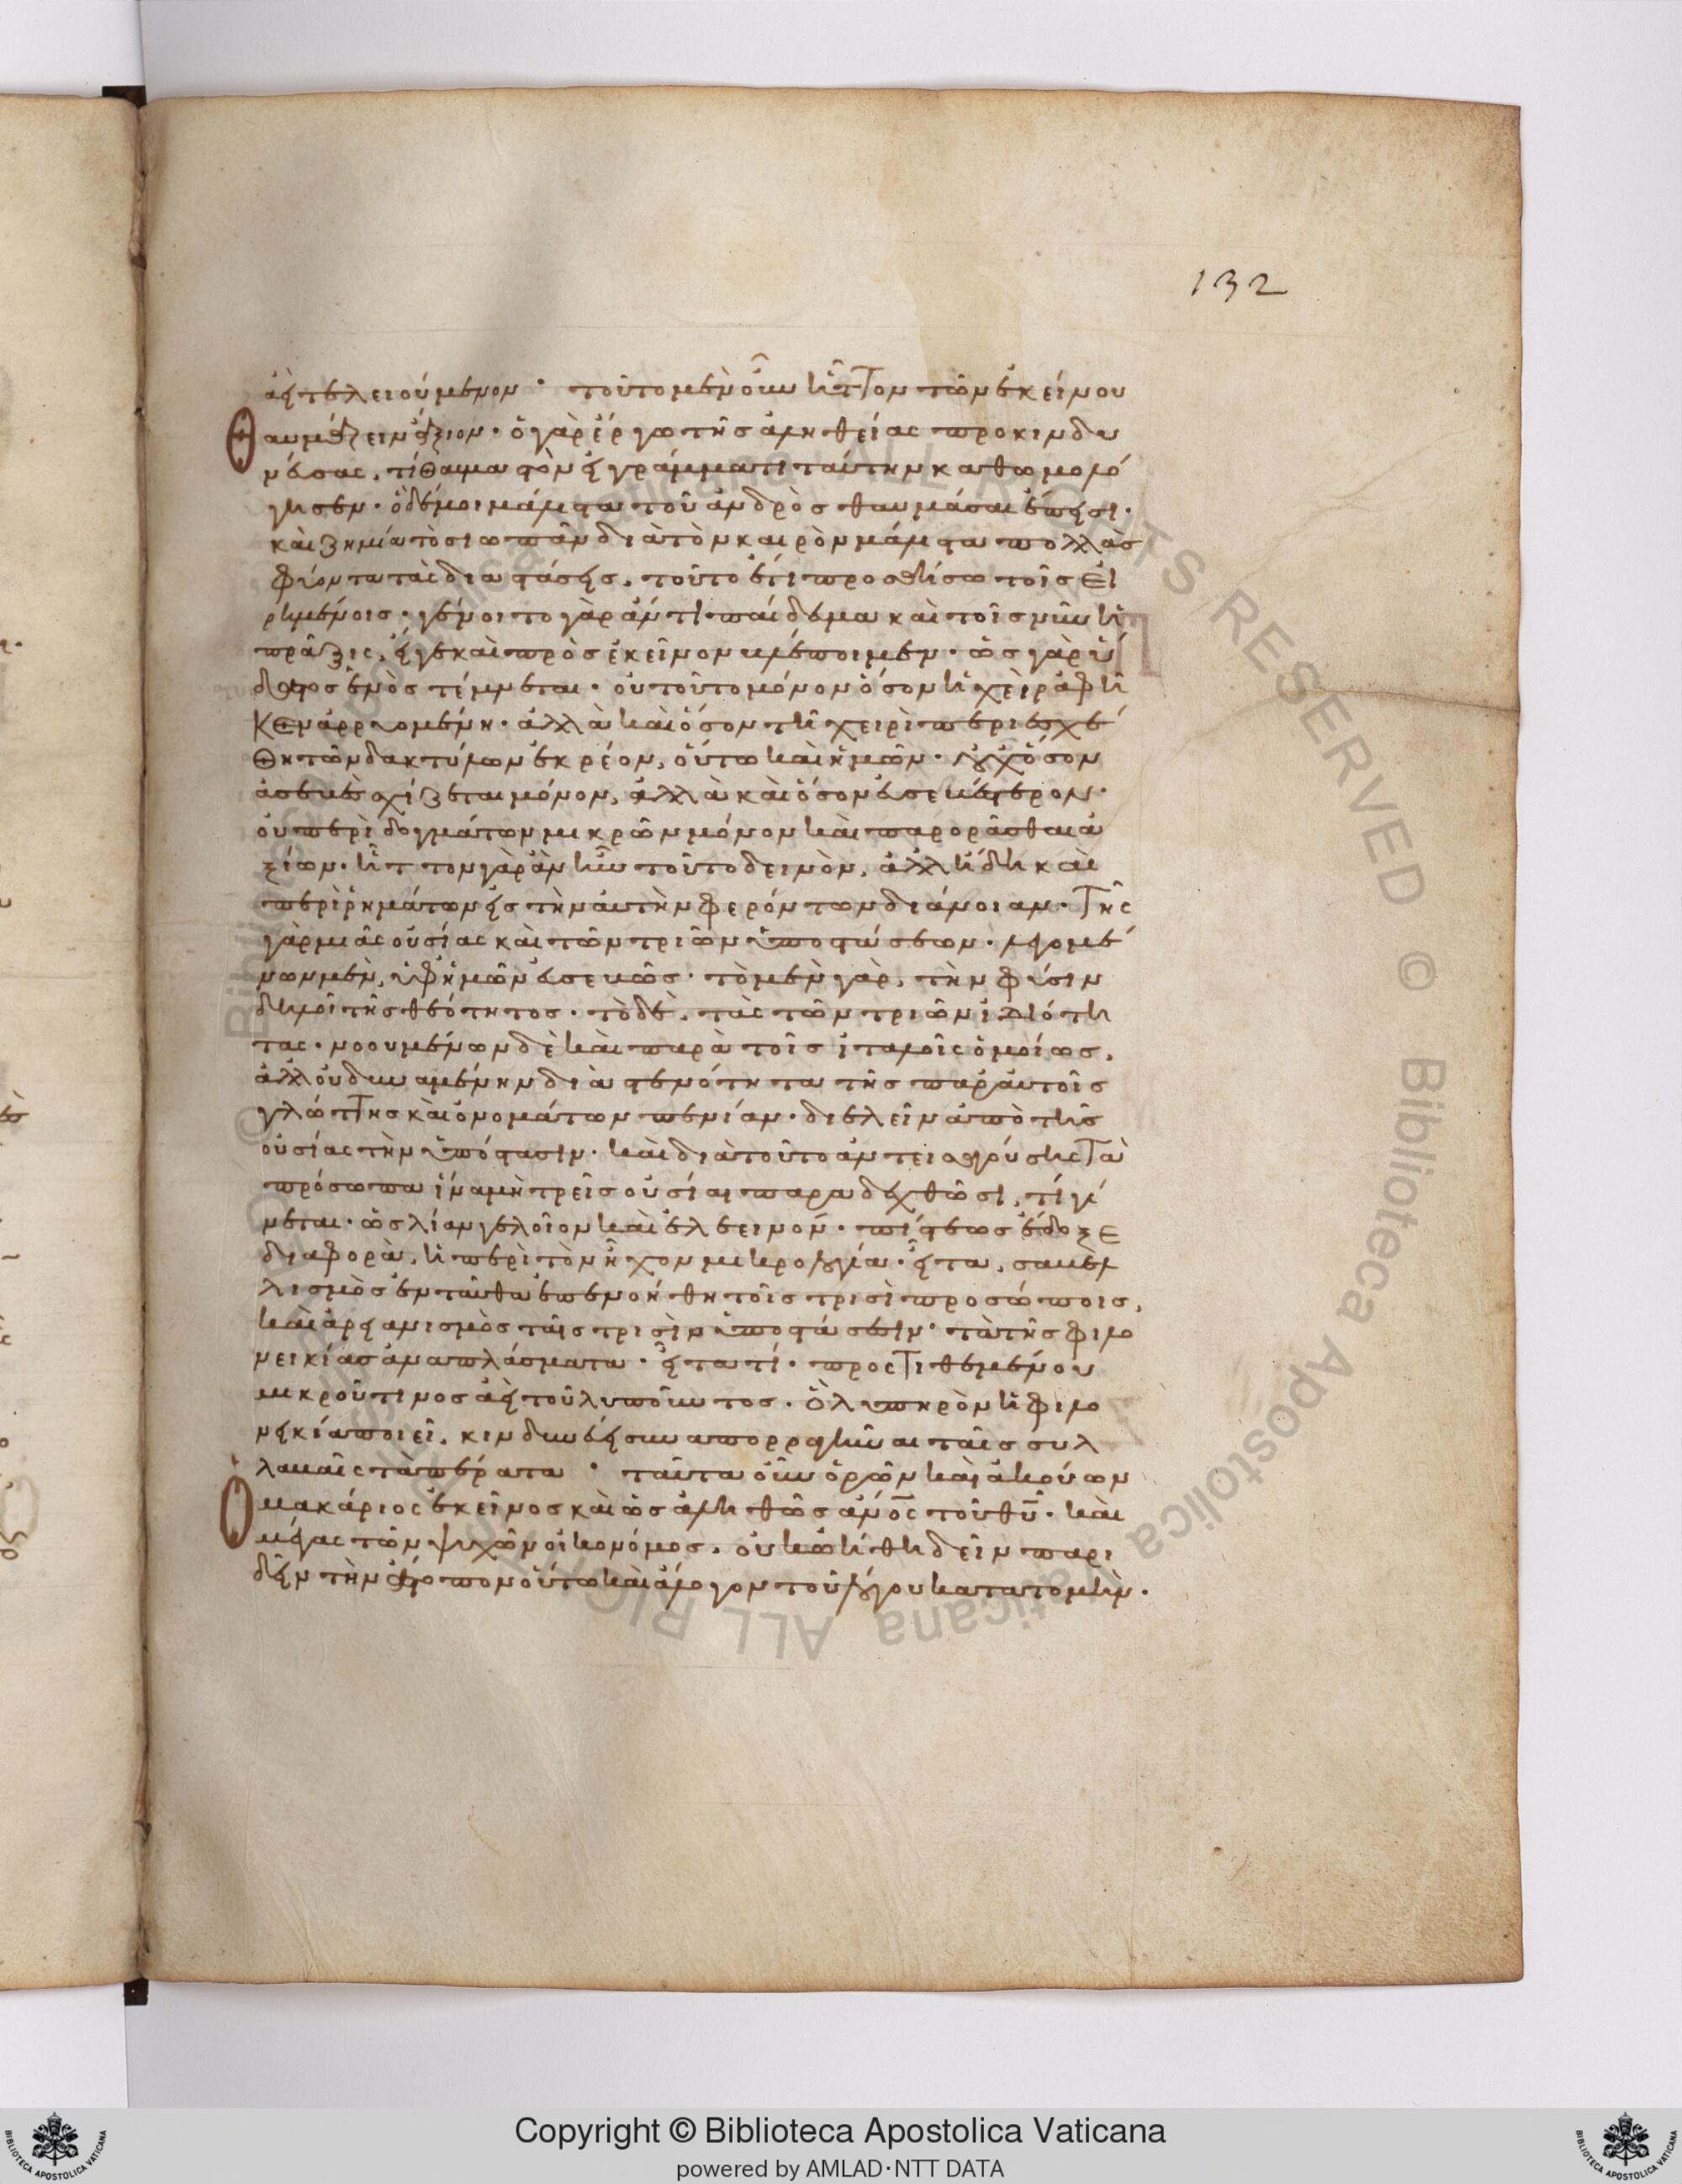 132
ἀεὶ τελειούμενον· τοῦτο μὲν οὖν ἧττον τῶν ἐκείνου
θαυμάζειν ἄξιον· ὁ γὰρ ἔργω τῆς ἀληθείας προκινδυ
νεύσας, τί θαῦμα τὸν εἰ γράμματι ταύτην καθωμολό
γησεν· ὃ δέ μοι μάλιστα τοῦ ἀνδρὸς θαυμάσαι ἔπεισι·
καὶ ζημία τὸ σιωπᾶν διὰ τὸν καιρὸν μάλιστα πολλὰς
φύοντα τὰς διαστάσεις, τοῦτο ἔτι προσθήσω τοῖς εἰ
ρημένοις· γένοιτο γὰρ ἄν τι παίδευμα καὶ τοῖς νῦν ἡ
πρᾶξις, εἴγε καὶ πρὸς ἐκεῖνον βλέποιμεν· ὡς γὰρ ὕ
δατος ἑνὸς τέμνεται· οὐ τοῦτο μόνον ὅσον ἡ χεὶρ ἀφῆ
κεν ἀρρυομένη· ἀλλὰ καὶ ὅσον τῆ χειρὶ περιεσχέ
θη τῶν δακτύλων ἐκρέον, οὕτω καὶ ἡμῶν· οὐχ ὅσον
ἀσεβὲς σχίζεται μόνον, ἀλλὰ καὶ ὅσον εὐσεβέστερον·
οὐ περὶ δογμάτων μικρῶν μόνον καὶ παρορᾶσθαι ἀ
ξίων· ἧττον γὰρ ἂν ἦν τοῦτο δεινὸν, ἀλλ' ἤδη καὶ
περὶ ῥημάτων εἰς τὴν αὐτὴν φερόντων διάνοιαν· τῆς
γὰρ μιᾶς οὐσίας καὶ τῶν τριῶν ὑποστάσεων· λεγομέ
νων μὲν, ὑφ' ἡμῶν εὐσεβῶς· τὸ μὲν γὰρ, τὴν φύσιν
δηλοῖ τῆς θεότητος· τὸ δὲ, τὰς τῶν τριῶν ἰδιότη
τας· νοουμένων δὲ καὶ παρὰ τοῖς ἰταλοῖς ὁμοίως,
ἀλλ' οὐ δυναμένην διὰ στενότητα τῆς παρ' αὐτοῖς
γλώττης καὶ ὀνομάτων πενίαν· διελεῖν ἀπὸ τῆς
οὐσίας τὴν ὑπόστασιν· καὶ διὰ τοῦτο ἀντεισαγούσης τὰ
πρόσωπα ἵνα μὴ τρεῖς οὐσίαι παραδεχθῶσι, τί γί
νεται· ὡς λίαν γελοῖον καὶ ἐλεεινόν· πίστεως ἔδοξε
διαφορὰ, ἡ περὶ τὸν ἦχον μικρολογία· εἶτα, σαβελ
λισμὸς ἐνταῦθα ἐπενοήθη τοῖς τρισὶ προσώποις,
καὶ ἀρειανισμὸς ταῖς τρισὶν ὑποστάσεσιν· τὰ τῆς φιλο
νεικίας ἀναπλάσματα· εἶτα τί· προστιθεμένου
μικροῦ τινος ἀεὶ τοῦ λυποῦντος· ὃ λυπηρὸν ἡ φιλο
νεικία ποιεῖ, κινδυνεύει συναπορραγῆναι ταῖς συλ
λαβαῖς τὰ πέρατα· ταῦτα οὖν ὁρῶν καὶ ἀκούων
ὁ μακάριος ἐκεῖνος καὶ ὡς ἀληθῶς ἄνος τοῦ θυ· καὶ
μέγας τῶν ψυχῶν οἰκονόμος, οὐκ ὠήθη δεῖν παρι
δεῖν τὴν ἄτοπον οὕτω καὶ ἄλογον τοῦ λόγου κατατομήν·
Copyright © Biblioteca Apostolica Vaticana
powered by AMLAD·NTT DATA